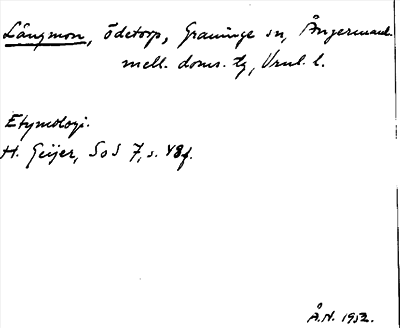 Långmon, ödetorp, Graninge sn, Ångermanl.
mell. doms. tg, Vnl. l.
Etymologi.
H. Geijer, SoS 7, s. 48f.
Å.N. 1952.